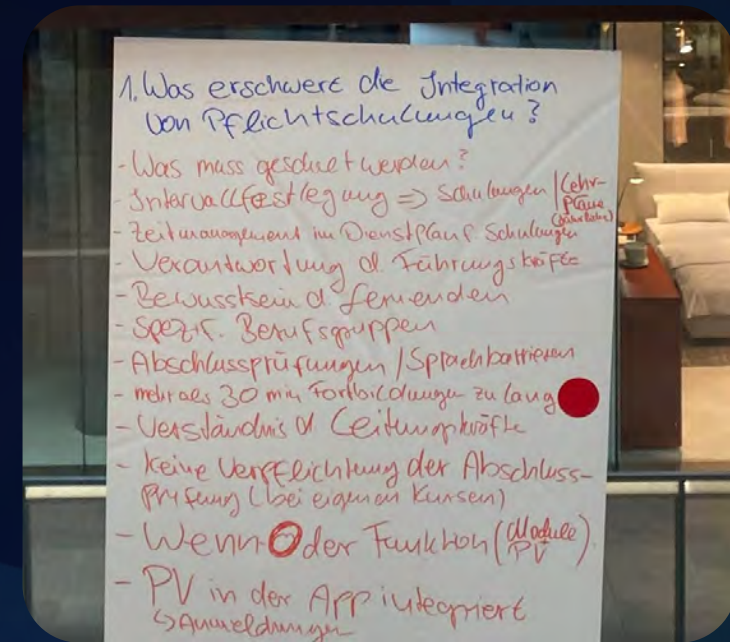 1. Was erschwert die Integration
von Pflichtschulungen?
- Was muss geschult werden?
- Intervallfestlegung => Schulungen / Lehr-
pläne
(jährliche)
- Zeitmanagement im Dienstplan f. Schulungen
- Verantwortung d. Führungskräfte
- Bewusstsein d. Lernenden
- Spezif. Berufsgruppen
- Abschlussprüfungen / Sprachbarrieren
- mehr als 30 min Fortbildungen zu lang
- Verständnis d. Leitungskräfte
- Keine Verpflichtung der Abschluss-
prüfung (bei eigenen Kursen)
- Wenn Oder Funktion (Module)
PV
- PV in der App integriert
↳ Anmeldungen